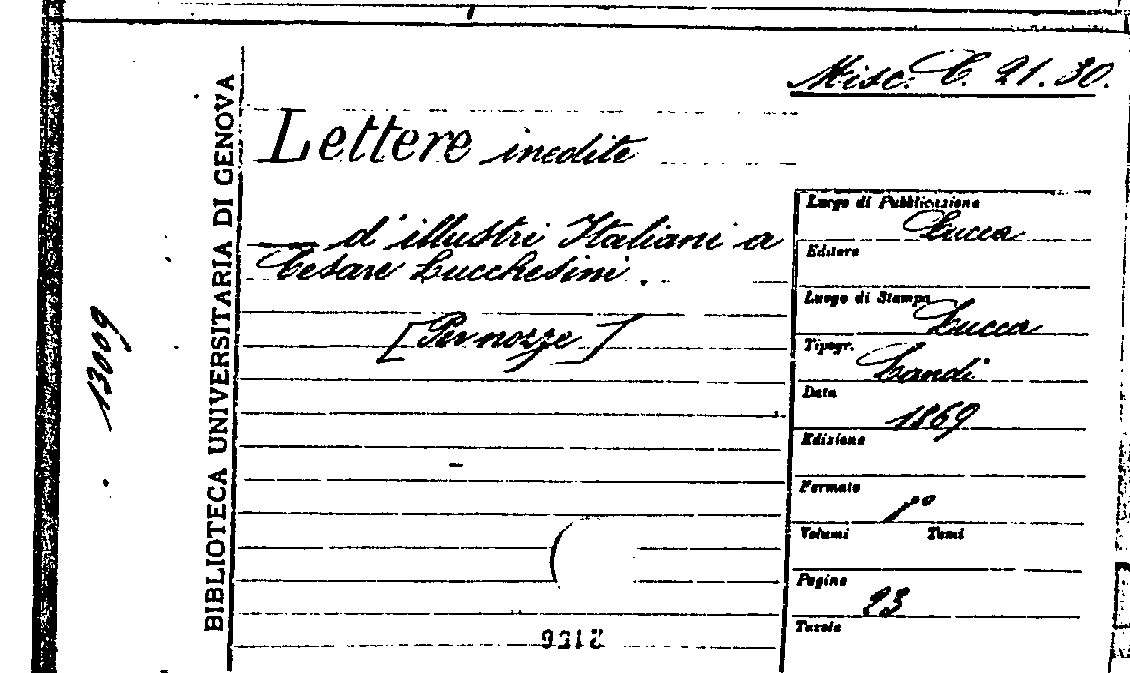 Misc. C. 21.30.
Lettere inedite
— d'illustri Italiani a
Cesare Lucchesini.
[Per nozze]
BIBLIOTECA UNIVERSITARIA DI GENOVA
13009
Luogo di Pubblicazione
Lucca
Editore
Luogo di Stampa
Lucca
Tipogr.
Landi
Data
1869
Edizione
Formato
Volumi Tomi
Pagine
23
Tavole